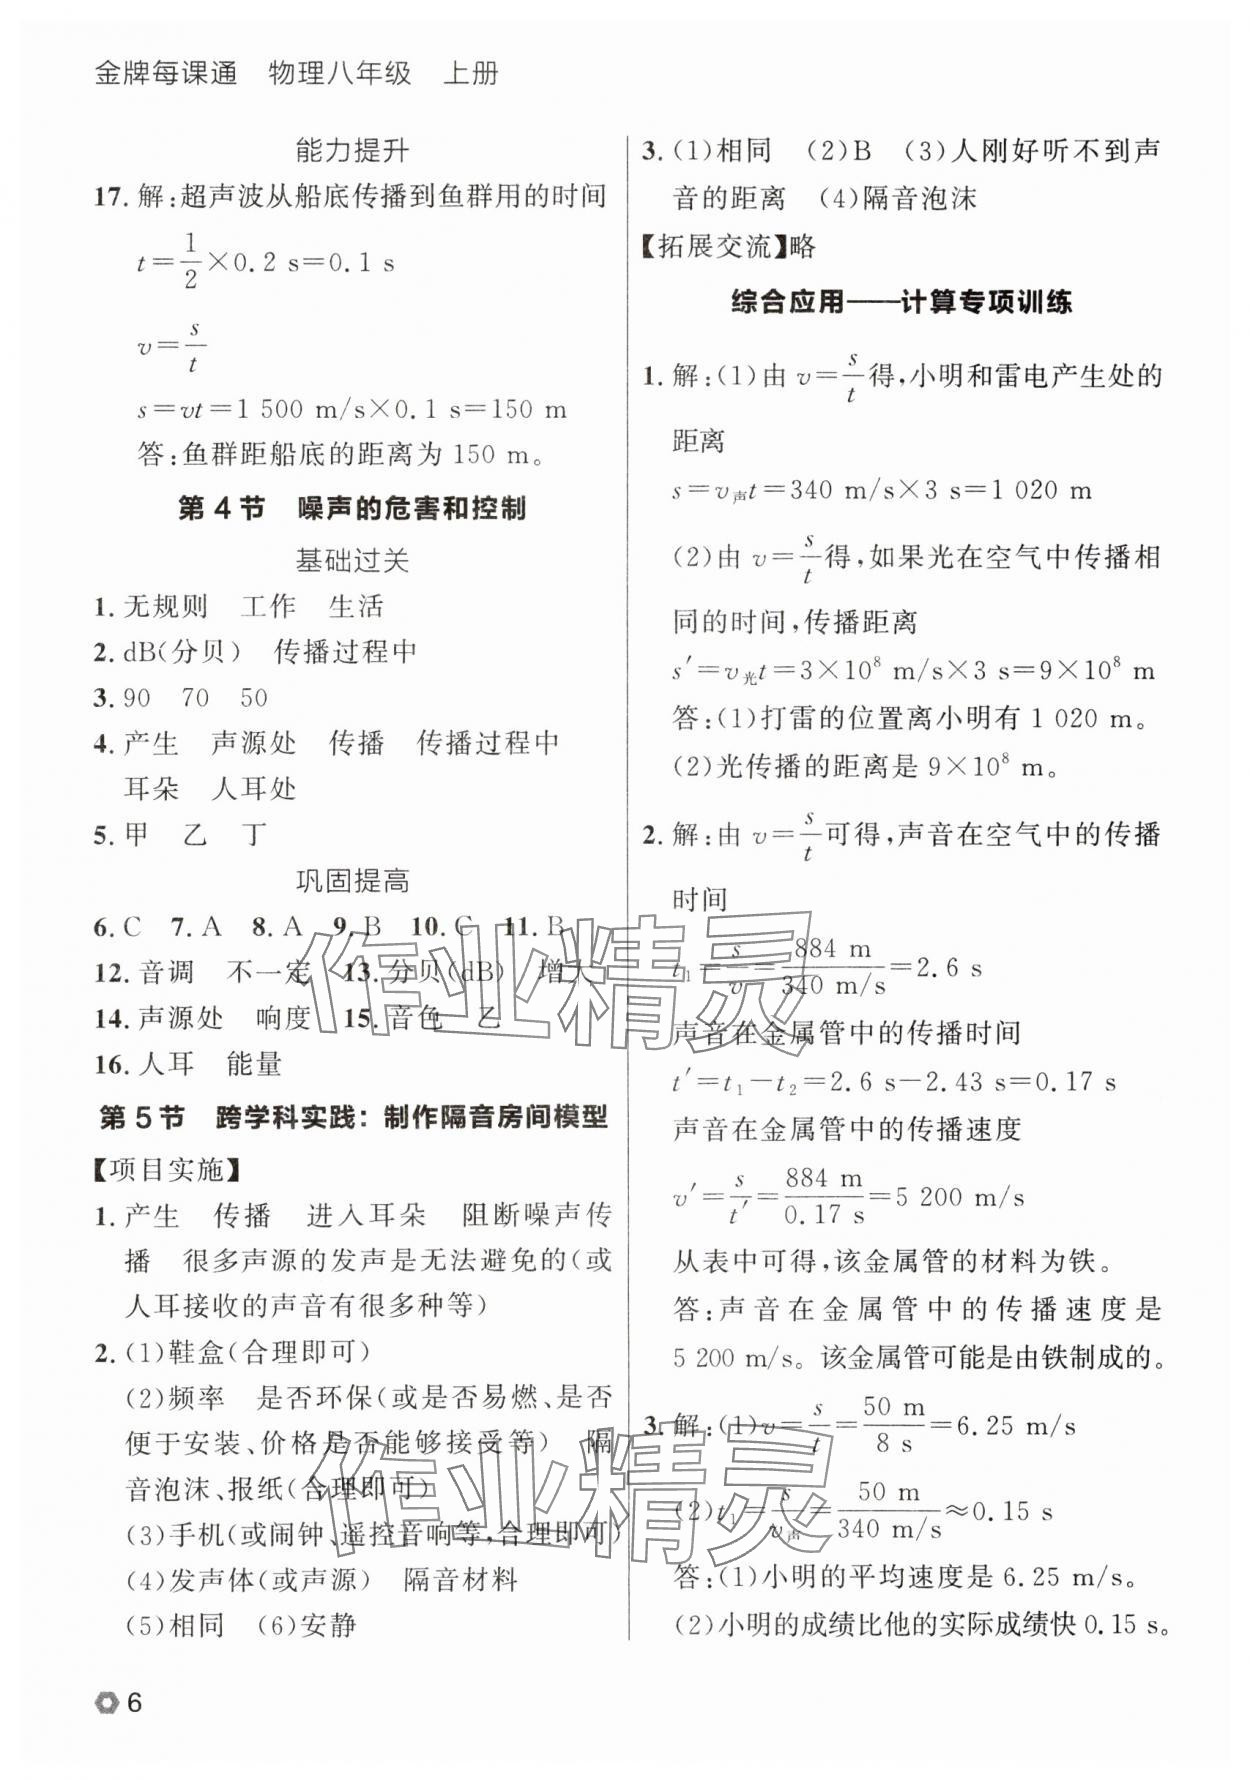 金牌每课通　物理八年级　上册
能力提升
17. 解:超声波从船底传播到鱼群用的时间
t=1/2×0.2 s=0.1 s
v=s/t
s=vt=1 500 m/s×0.1 s=150 m
答:鱼群距船底的距离为150 m。
第4节　噪声的危害和控制
基础过关
1. 无规则　工作　生活
2. dB(分贝)　传播过程中
3. 90　70　50
4. 产生　声源处　传播　传播过程中
耳朵　人耳处
5. 甲　乙　丁
巩固提高
6. C　7. A　8. A　9. B　10. C　11. B
12. 音调　不一定　13. 分贝(dB)　增大
14. 声源处　响度　15. 音色　乙
16. 人耳　能量
第5节　跨学科实践：制作隔音房间模型
【项目实施】
1. 产生　传播　进入耳朵　阻断噪声传
播　很多声源的发声是无法避免的(或
人耳接收的声音有很多种等)
2. (1)鞋盒(合理即可)
(2)频率　是否环保(或是否易燃、是否
便于安装、价格是否能够接受等)　隔
音泡沫、报纸(合理即可)
(3)手机(或闹钟、遥控音响等,合理即可)
(4)发声体(或声源)　隔音材料
(5)相同　(6)安静
3. (1)相同　(2)B　(3)人刚好听不到声
音的距离　(4)隔音泡沫
【拓展交流】略
综合应用——计算专项训练
1. 解:(1)由 v=s/t得,小明和雷电产生处的
距离
s=v声t=340 m/s×3 s=1 020 m
(2)由 v=s/t得,如果光在空气中传播相
同的时间,传播距离
s′=v光t=3×10⁸ m/s×3 s=9×10⁸ m
答:(1)打雷的位置离小明有1 020 m。
(2)光传播的距离是9×10⁸ m。
2. 解:由 v=s/t可得,声音在空气中的传播
时间
t₁=s/v=884 m/340 m/s=2.6 s
声音在金属管中的传播时间
t′=t₁−t₂=2.6 s−2.43 s=0.17 s
声音在金属管中的传播速度
v′=s/t′=884 m/0.17 s=5 200 m/s
从表中可得,该金属管的材料为铁。
答:声音在金属管中的传播速度是
5 200 m/s。该金属管可能是由铁制成的。
3. 解:(1)v=s/t=50 m/8 s=6.25 m/s
(2)t₁=s/v声=50 m/340 m/s≈0.15 s
答:(1)小明的平均速度是6.25 m/s。
(2)小明的成绩比他的实际成绩快0.15 s。
作业精灵
作业精灵
6